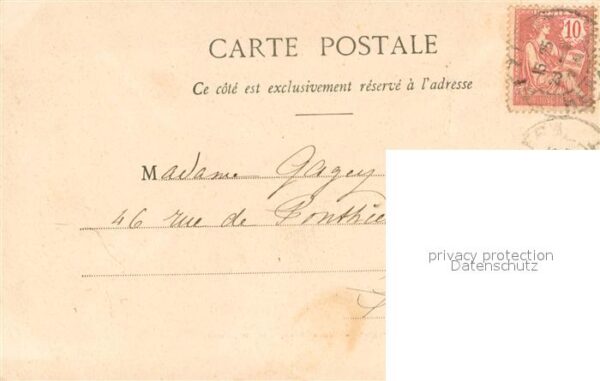 CARTE POSTALE
Ce côté est exclusivement réservé à l'adresse
10
Madame Gagey
46 rue de Ponthie
privacy protection
Datenschutz